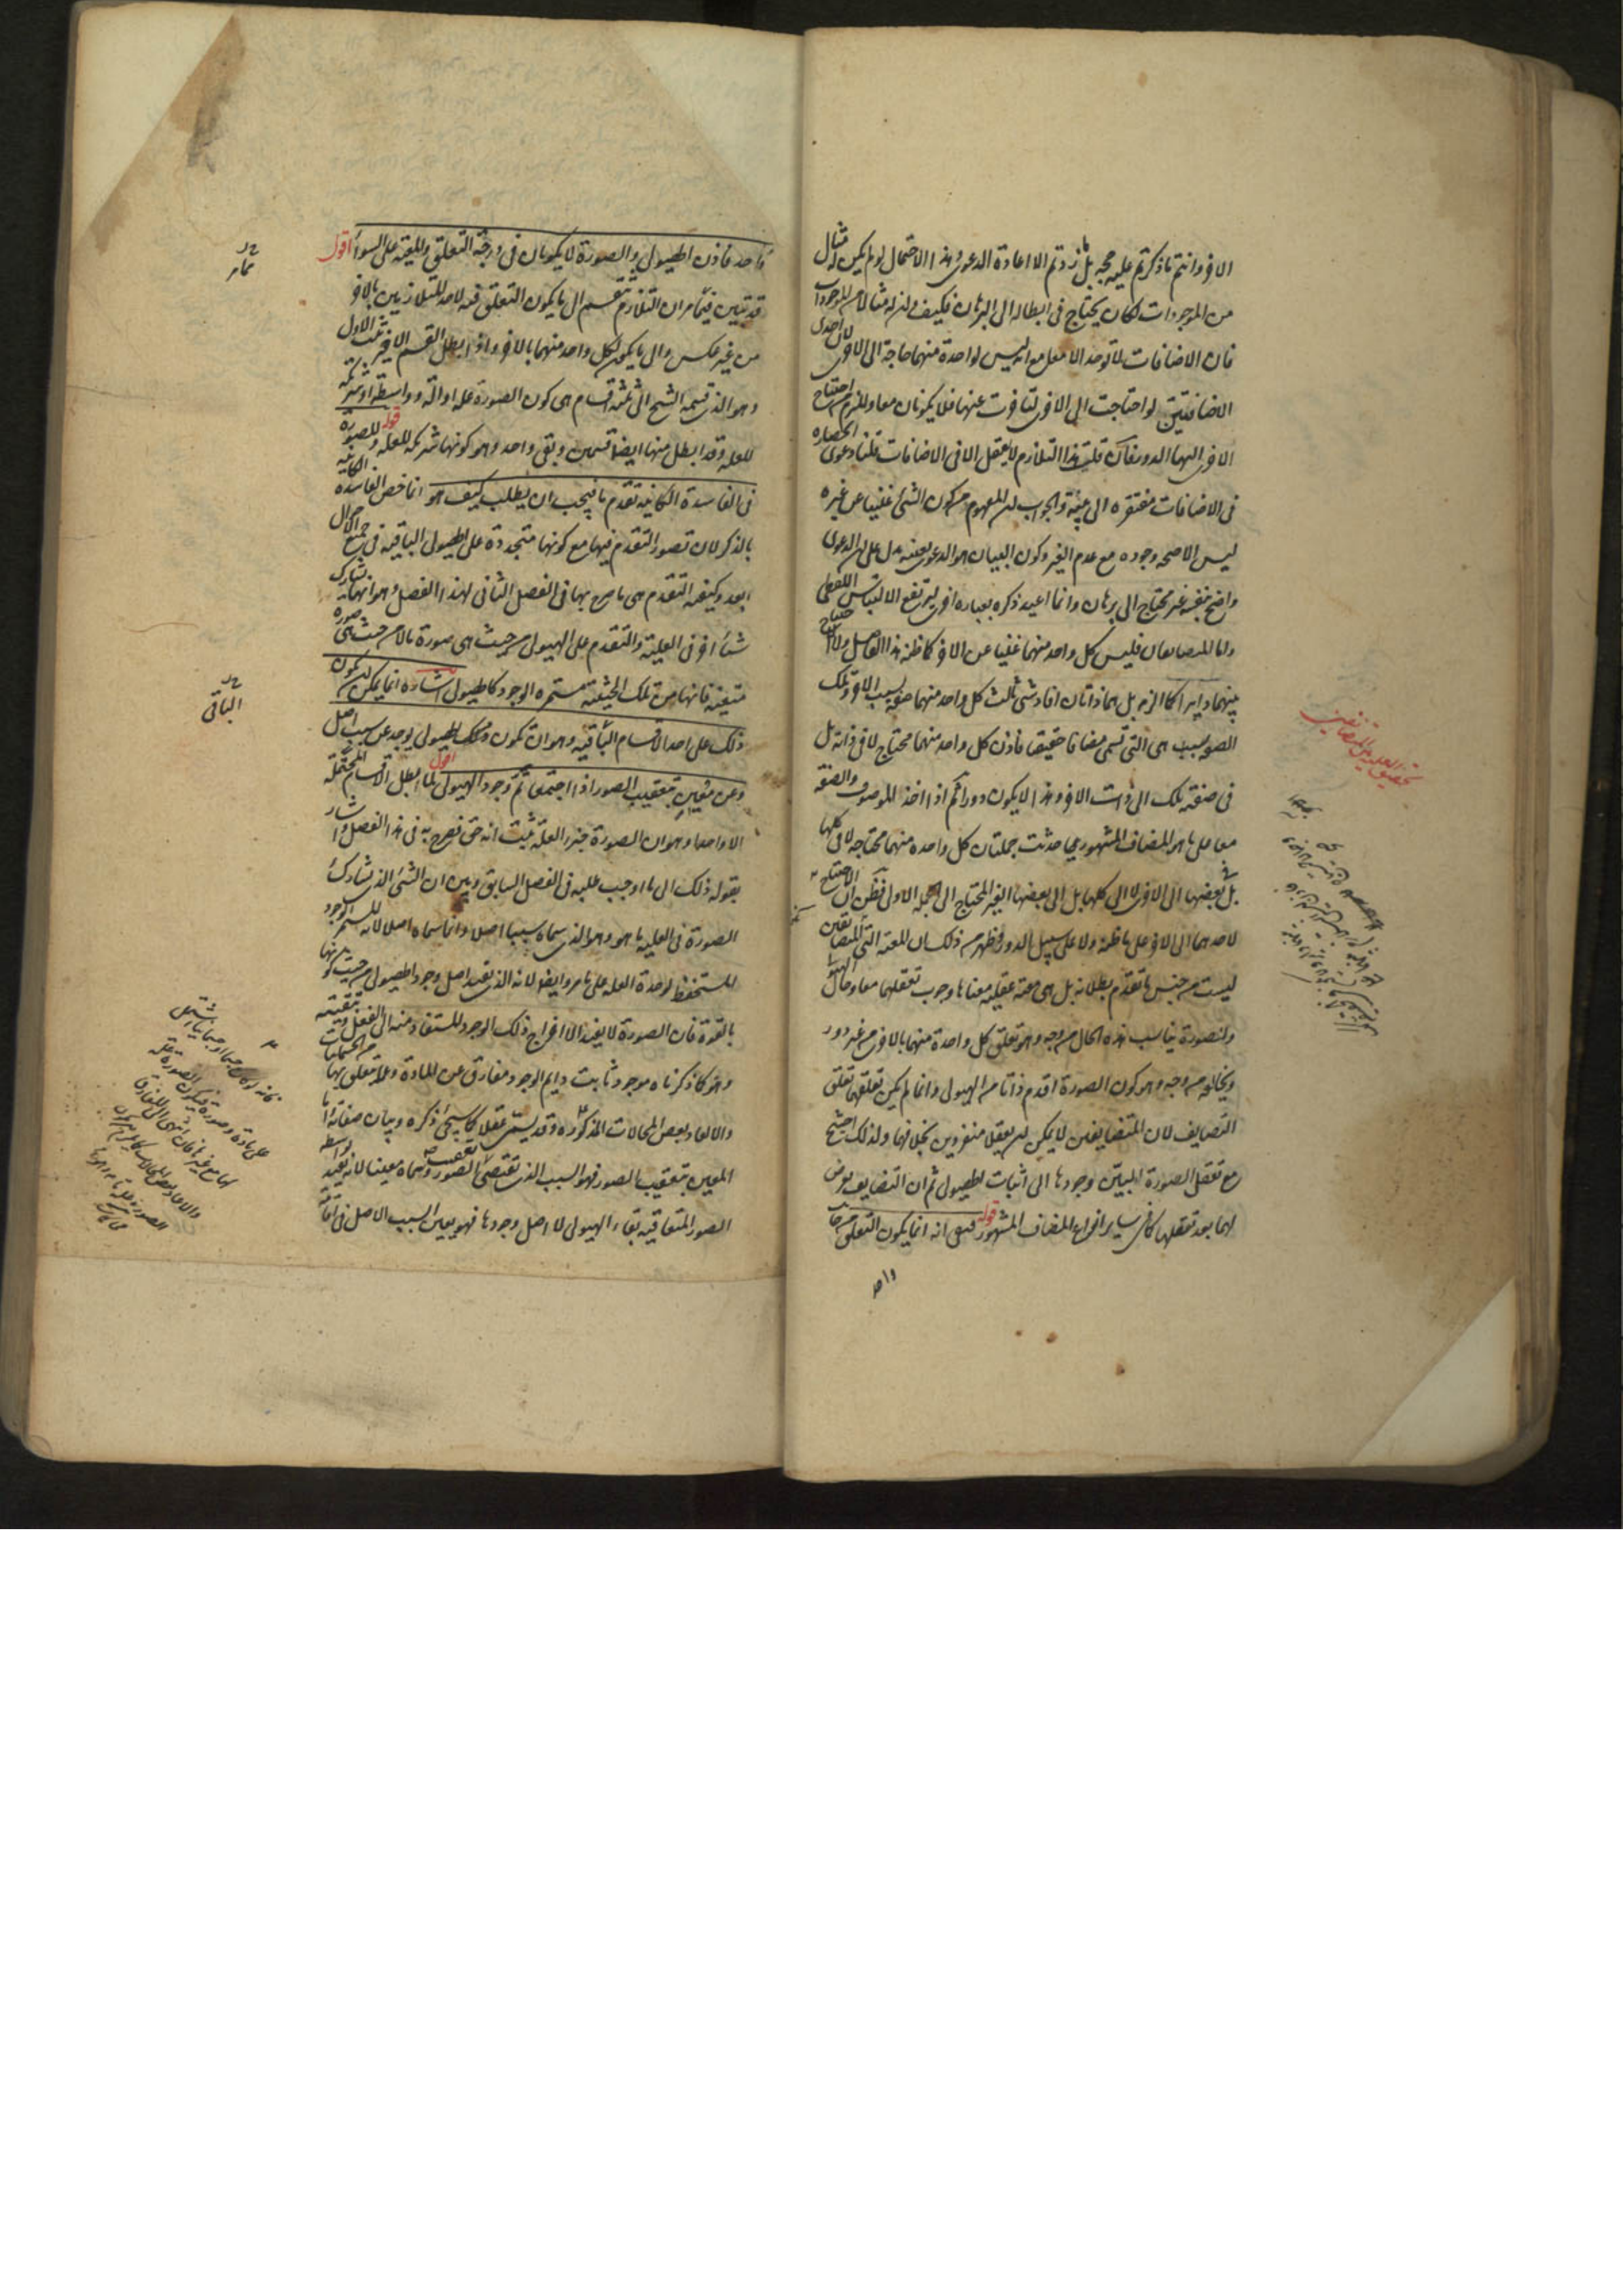 الاخر وانتم ما ذكرتم عليه حجه بل ما زدتم الا اعادة الدعوى وهذا الاحتمال لو لم يكن له مثال
من الموجودات لكان يحتاج فى ابطاله الى البرهان فكيف وان له مثالا من الموجودات
فان الاضافات لا توجد الا معا مع انه ليس لواحدة منهما حاجة الى الاخرى لان احدى
الاضافتين لو احتاجت الى الاخرى لتاخرت عنها فلا يكونان معا وللزم احتياج
الاخرى اليها الدور فان قلت هذا التلازم لا يعقل الا فى الاضافات قلنا دعوى انحصاره
فى الاضافات مفتقره الى بينة والجواب ان المفهوم من كون الشئ غنيا عن غيره
ليس الا صحه وجوده مع عدم الغير وكون البيان هو الدعوى بعينه دل على ان الدعوى
واضح بنفسه غير محتاج الى برهان وانما اعيد ذكره بعباره اخرى ليرتفع الالتباس اللفظى
واما المتضايفان فليس كل واحد منهما غنيا عن الاخر كما ظنه هذا الفاضل ولا الاحتياج
بينهما دايرا كما الزم بل هما ذاتان افاد شئ ثالث كل واحد منهما صفة بسبب الاخر وتلك
الصفة هى التى تسمى مضافا حقيقيا فاذن كل واحد منهما محتاج لا فى ذاته بل
فى صفته تلك الى ذات الاخر وهذا لا يكون دورا ثم اذا اخذ الموصوف والصفة
معا على ما هو المضاف المشهورى حدثت جملتان كل واحده منهما محتاجه لا فى كلها
بل فى بعضها الى الاخرى لا الى كلها بل الى بعضها الغير المحتاج الى الجمله الاولى فظن ان الاحتياج
لاحدهما الى الاخر على ما ظنه ولا على سبيل الدور فظهر من ذلك ان المعية التى للمتضايفين
ليست من جنس ما تقدم بطلانه بل هى معية عقلية معناها وجوب تعقلهما معا وحال الهيولى
والصورة يناسب هذه الحال من وجه وهو تعلق كل واحدة منهما بالاخرى من غير دور
ويخالفه من وجه وهو كون الصورة اقدم ذاتا من الهيولى وانما لم يكن تعلقهما تعلق
التضايف لان المتضايفين لا يمكن ان يعقلا منفردين بخلافهما ولذلك احتيج
مع تعقل الصورة البين وجودها الى اثبات الهيولى ثم ان التضايف يعرض
لهما بعد تعقلهما كما فى ساير انواع المضاف المشهور قوله فبقى انه انما يكون التعلق من جانب
واحد
تحقيق المعية بين المتضايفين
واحد فاذن الهيولى والصورة لا يكونان فى درجة التعلق والمعية على السواء اقول
قد تبين فيما مر ان التلازم تنقسم الى ما يكون التعلق فيه لاحد المتلازمين بالاخر
من غير عكس والى ما يكون لكل واحد منهما بالاخر واذا ابطل القسم الاخير ثبت الاول
وهو الذى قسمه الشيخ الى ثلثة اقسام هى كون الصورة علة او آلة وواسطة او شريكة
للعلة وقد ابطل منها ايضا قسمين وبقى واحد وهو كونها شريكة للعلة قوله وللصورة
فى الفاسدة الكاينة تقدم ما فيجب ان يطلب كيف هو انما خص الفاسدة الكاينة
بالذكر لان تصور التقدم فيها مع كونها متجددة على الهيولى الباقية فى جميع الاحوال
ابعد وكيفية التقدم هى ما صرح بها فى الفصل الثانى لهذا الفصل وهو انها تشارك
شيئا اخر فى العلية والتقدم على الهيولى من حيث هى صورة ما لا من حيث هى صورة
متعينة فانها من تلك الحيثية مستمرة الوجود كالهيولى اشارة انما يمكن ان يكون
ذلك على احد الاقسام الباقية وهو ان تكون الهيولى توجد عن سبب اصل
وعن معين بتعقيب الصور اذا اجتمعا تم وجود الهيولى اقول لما ابطل الاقسام المحتملة
الا واحدا وهو ان الصورة جزء العلة ثبت انه حق فصرح به فى هذا الفصل واشار
بقوله ذلك الى ما اوجب طلبه فى الفصل السابق وبين ان الشئ الذى تشاركه
الصورة فى العلية ما هو وهو الذى سماه سببا اصلا وانما سماه اصلا لانه المستمر الوجود
المستحفظ لوحدة العلة على ما مر وايضا لانه الذى يفيد اصل وجود الهيولى من حيث كونها
بالقوة فان الصورة لا يفيد الا اخراج ذلك الوجود المستفاد منه الى الفعل وتبقيته
وهو كما ذكرناه موجود ثابت دايم الوجود مفارق عن المادة وما يتعلق بها من الجسمانيات
والا لعاد بعض المحالات المذكورة وقد يسمى عقلا كما سيجئ ذكره وبيان صفاته اما
المعين بتعقيب الصور فهو السبب الذى يقتضى تعقب الصور وسماه معينا لانه يفيد بواسطة
الصور المتعاقبة بقاء الهيولى لا اصل وجودها فهو يعين السبب الاصل فى اقامة
مما مر
الباقى